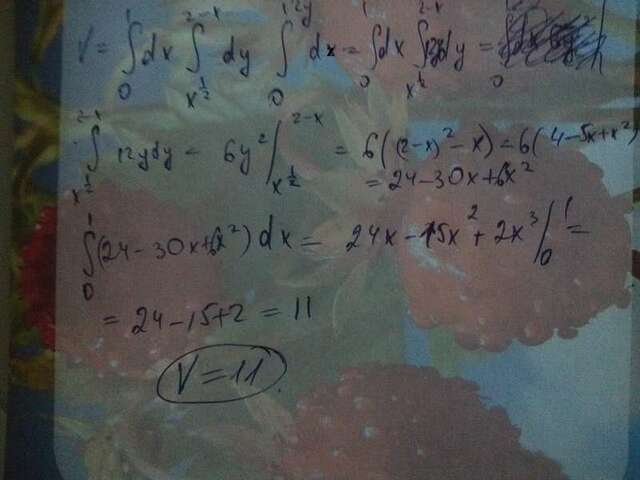 V = ∫₀¹ dx ∫_{x^{1/2}}^{2-x} dy ∫₀^{12y} dx = ∫₀¹ dx ∫_{x^{1/2}}^{2-x} 12y dy =
∫_{x^{1/2}}^{2-x} 12y dy = 6y² |_{x^{1/2}}^{2-x} = 6((2-x)² - x) = 6(4-5x+x²)
= 24-30x+6x²
∫₀¹ (24-30x+6x²) dx = 24x - 15x² + 2x³ |₀¹ =
= 24-15+2 = 11
V = 11